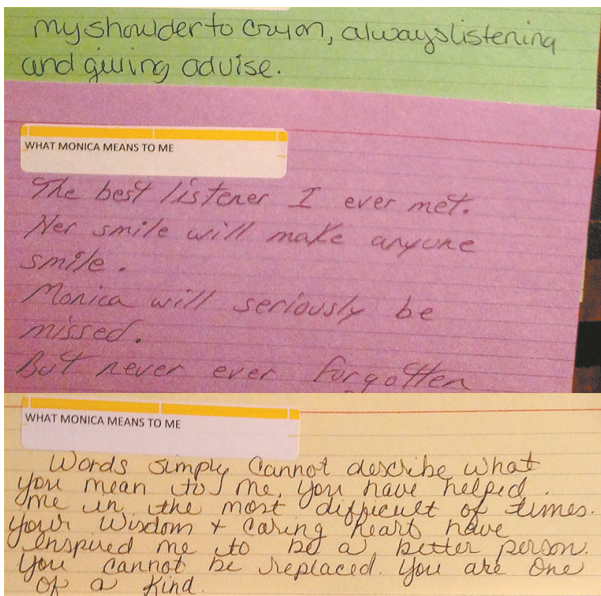 my shoulder to cry on, always listening
and giving advise.
WHAT MONICA MEANS TO ME
The best listener I ever met.
Her smile will make anyone
smile.
Monica will seriously be
missed.
But never ever forgotten
WHAT MONICA MEANS TO ME
Words simply cannot describe what
you mean to me. You have helped
me in the most difficult of times.
your wisdom + caring heart have
inspired me to be a better person.
You cannot be replaced. You are one
of a kind.